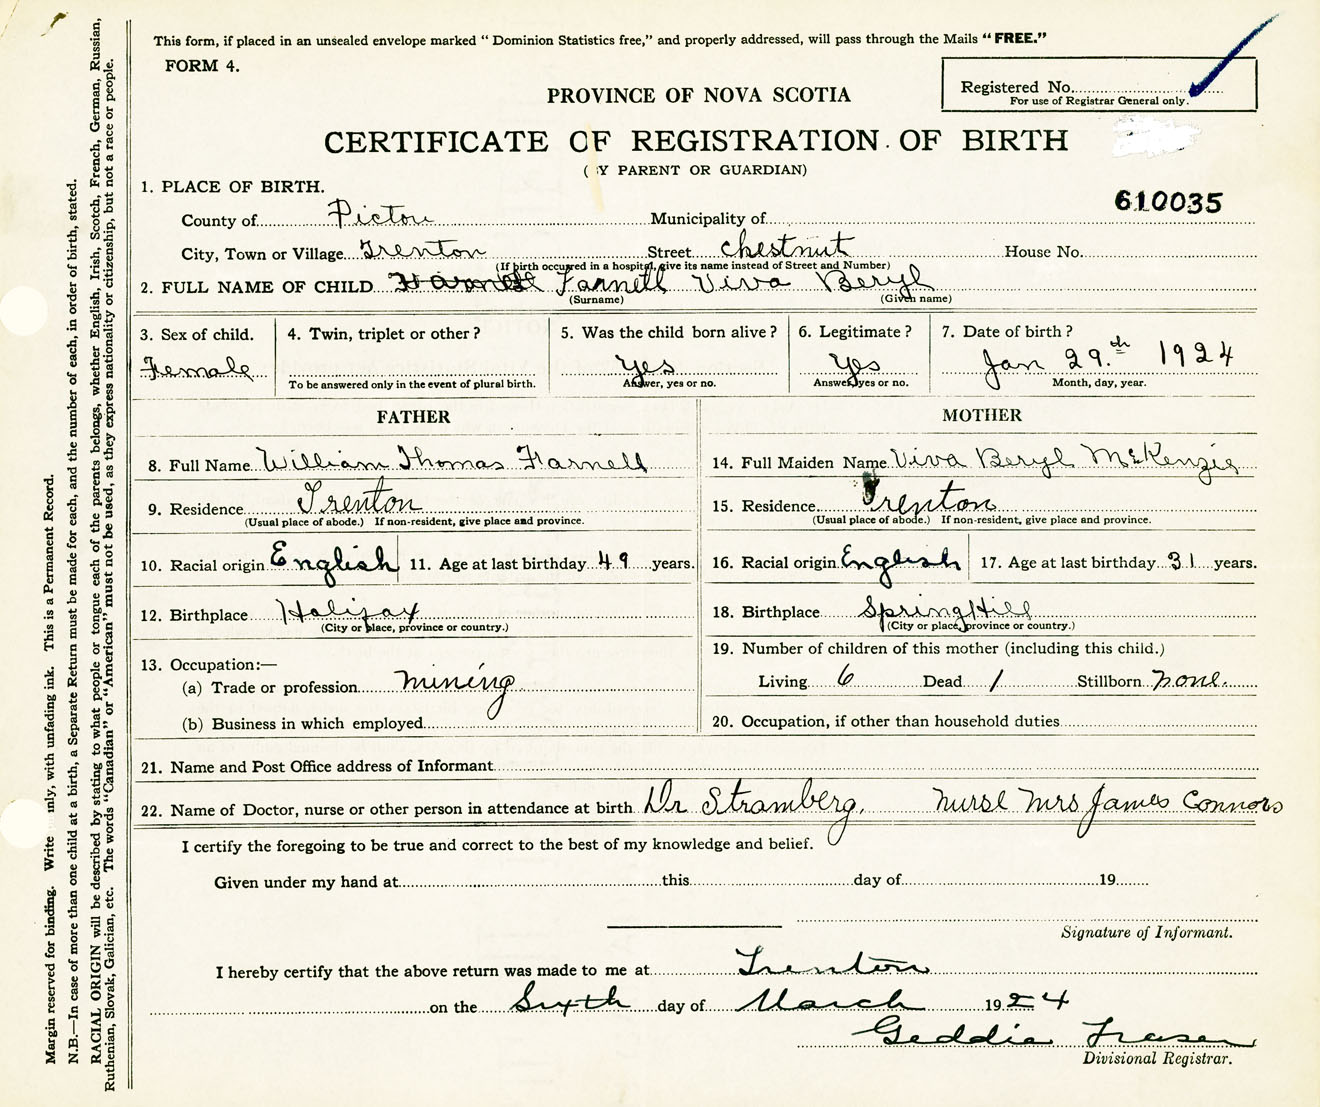 This form, if placed in an unsealed envelope marked “ Dominion Statistics free,” and properly addressed, will pass through the Mails “ FREE.”
FORM 4.
Registered No.
For use of Registrar General only.
PROVINCE OF NOVA SCOTIA
CERTIFICATE OF REGISTRATION OF BIRTH
( Y PARENT OR GUARDIAN)
610035
1. PLACE OF BIRTH.
County of Pictou Municipality of
City, Town or Village Trenton Street chestnut House No.
(If birth occurred in a hospital, give its name instead of Street and Number)
2. FULL NAME OF CHILD Farnell Viva Beryl
(Surname) (Given name)
3. Sex of child. 4. Twin, triplet or other ? 5. Was the child born alive ? 6. Legitimate ? 7. Date of birth ?
Female Yes Yes Jan 29.th 1924
To be answered only in the event of plural birth. Answer, yes or no. Answer, yes or no. Month, day, year.
FATHER MOTHER
8. Full Name William Thomas Farnell 14. Full Maiden Name Viva Beryl McKenzie
9. Residence Trenton 15. Residence Trenton
(Usual place of abode.) If non-resident, give place and province. (Usual place of abode.) If non-resident, give place and province.
10. Racial origin English 11. Age at last birthday 49 years. 16. Racial origin English 17. Age at last birthday 31 years.
12. Birthplace Halifax 18. Birthplace SpringHill
(City or place, province or country.) (City or place, province or country.)
13. Occupation:— 19. Number of children of this mother (including this child.)
(a) Trade or profession mining Living 6 Dead 1 Stillborn none.
(b) Business in which employed 20. Occupation, if other than household duties
21. Name and Post Office address of Informant
22. Name of Doctor, nurse or other person in attendance at birth Dr Stramberg, nurse Mrs James Connors
I certify the foregoing to be true and correct to the best of my knowledge and belief.
Given under my hand at this day of 19
Signature of Informant.
I hereby certify that the above return was made to me at Trenton
on the Sixth day of March 1924
Geddie Fraser
Divisional Registrar.
Margin reserved for binding. Write nly, with unfading ink. This is a Permanent Record.
N.B.—In case of more than one child at a birth, a Separate Return must be made for each, and the number of each, in order of birth, stated.
RACIAL ORIGIN will be described by stating to what people or tongue each of the parents belongs, whether English, Irish, Scotch, French, German, Russian,
Ruthenian, Slovak, Galician, etc. The words “Canadian” or “American” must not be used, as they express nationality or citizenship, but not a race or people.